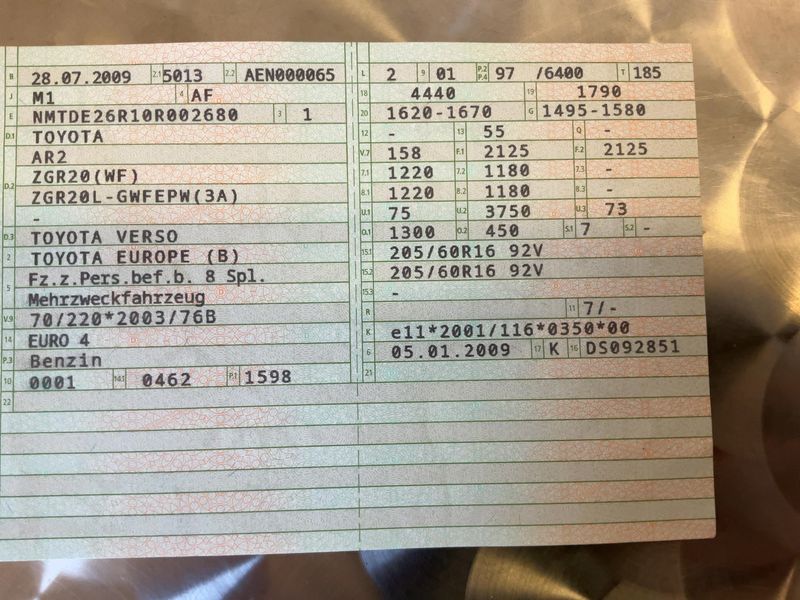 B 28.07.2009 2.1 5013 2.2 AEN000065
J M1 4 AF
E NMTDE26R10R002680 3 1
D.1 TOYOTA
AR2
D.2 ZGR20(WF)
ZGR20L-GWFEPW(3A)
-
D.3 TOYOTA VERSO
2 TOYOTA EUROPE (B)
5 Fz.z.Pers.bef.b. 8 Spl.
Mehrzweckfahrzeug
V.9 70/220*2003/76B
14 EURO 4
P.3 Benzin
10 0001 14.1 0462 P.1 1598
22
L 2 9 01 P.2 P.4 97 /6400 T 185
18 4440 19 1790
20 1620-1670 G 1495-1580
12 - 13 55 Q -
V.7 158 F.1 2125 F.2 2125
7.1 1220 7.2 1180 7.3 -
8.1 1220 8.2 1180 8.3 -
U.1 75 U.2 3750 U.3 73
O.1 1300 O.2 450 S.1 7 S.2 -
15.1 205/60R16 92V
15.2 205/60R16 92V
15.3 -
R 11 7/-
K e11*2001/116*0350*00
6 05.01.2009 17 K 16 DS092851
21